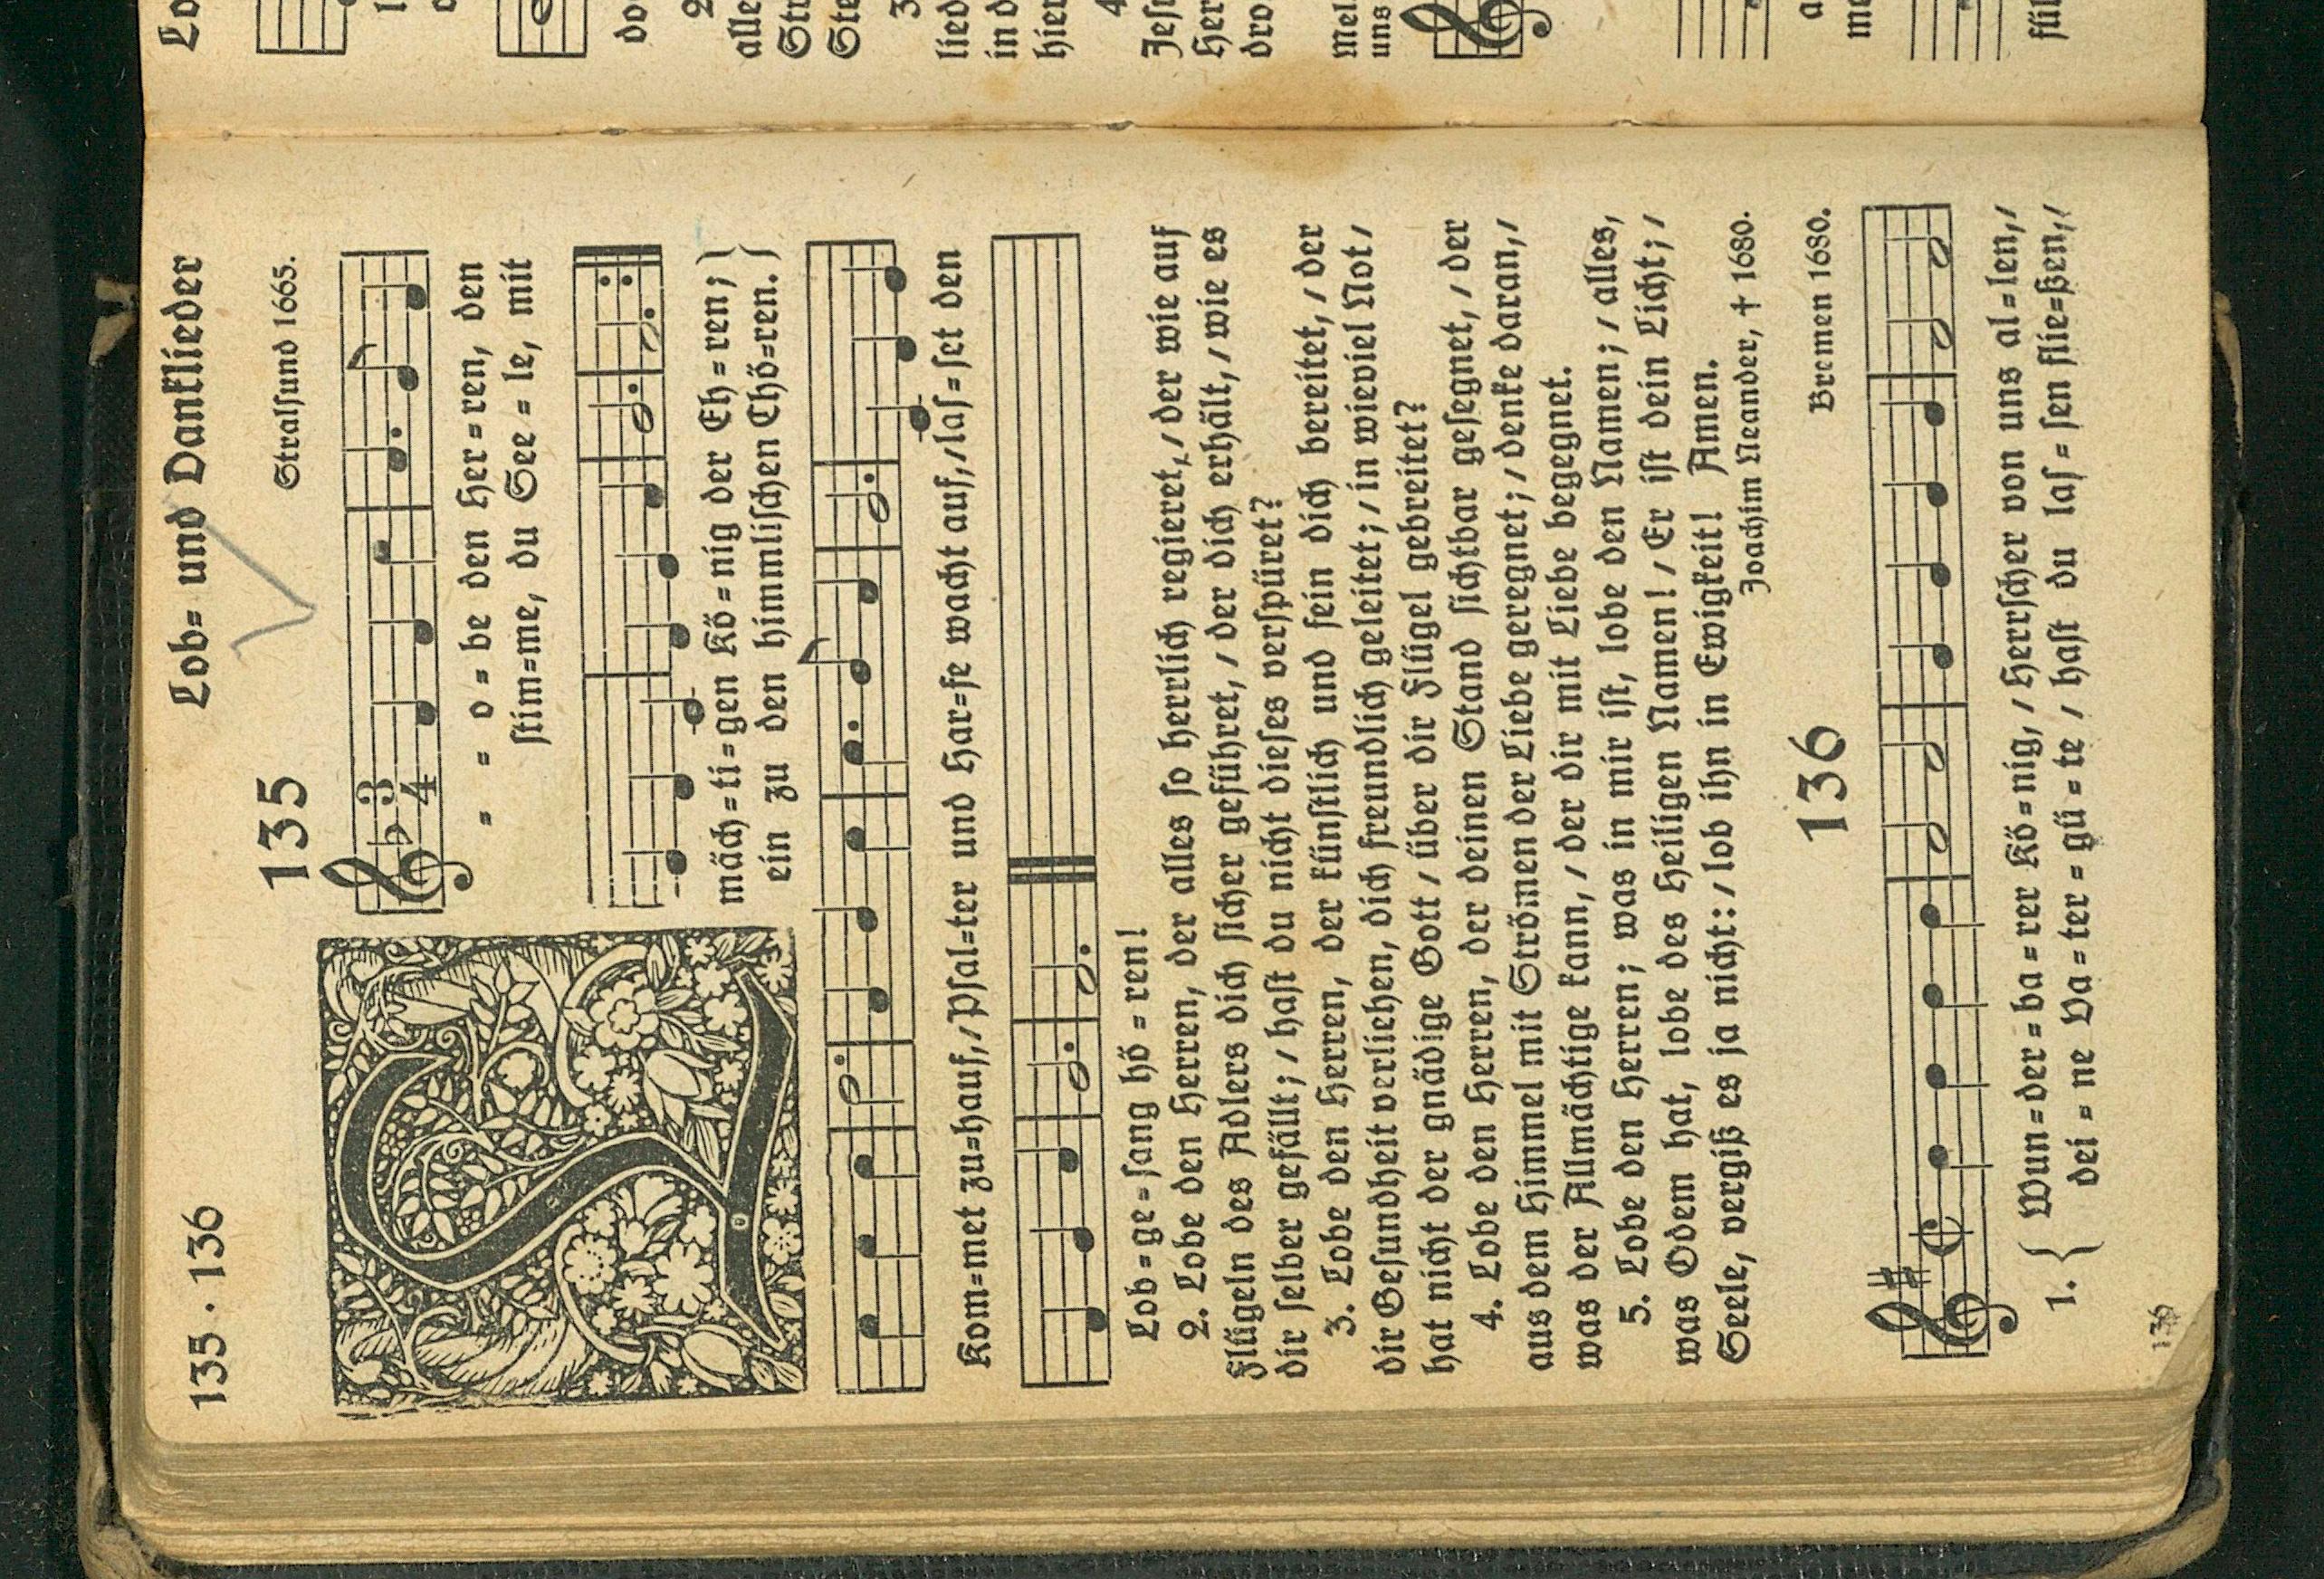 135 · 136
Lob= und Danklieder
135
Stralsund 1665.
= = o = be den Her = ren, den
stim=me, du See = le, mit
mäch=ti=gen Kö=nig der Eh=ren; }
ein zu den himmlischen Chö=ren. }
Kom=met zu=hauf, / Psal=ter und Har=fe wacht auf, / las=set den
Lob=ge=sang hö=ren!
2. Lobe den Herren, der alles so herrlich regieret, / der wie auf
Flügeln des Adlers dich sicher geführet, / der dich erhält, / wie es
dir selber gefällt; / hast du nicht dieses verspüret?
3. Lobe den Herren, der künstlich und fein dich bereitet, / der
dir Gesundheit verliehen, dich freundlich geleitet; / in wieviel Not /
hat nicht der gnädige Gott / über dir Flügel gebreitet?
4. Lobe den Herren, der deinen Stand sichtbar gesegnet, / der
aus dem Himmel mit Strömen der Liebe geregnet; / denke daran, /
was der Allmächtige kann, / der dir mit Liebe begegnet.
5. Lobe den Herren; was in mir ist, lobe den Namen; / alles,
was Odem hat, lobe des Heiligen Namen! / Er ist dein Licht; /
Seele, vergiß es ja nicht: / lob ihn in Ewigkeit! Amen.
Joachim Neander, † 1680.
136
Bremen 1680.
1. { Wun=der=ba=rer Kö=nig, / Herrscher von uns al=len, /
dei = ne Va=ter=gü=te / hast du las = sen flie=ßen, /
136
Lo
do
2
alle
Str
Ste
3
lied
in d
hier
4
Jesu
Her
dro
Mel.
uns
a
me
fül